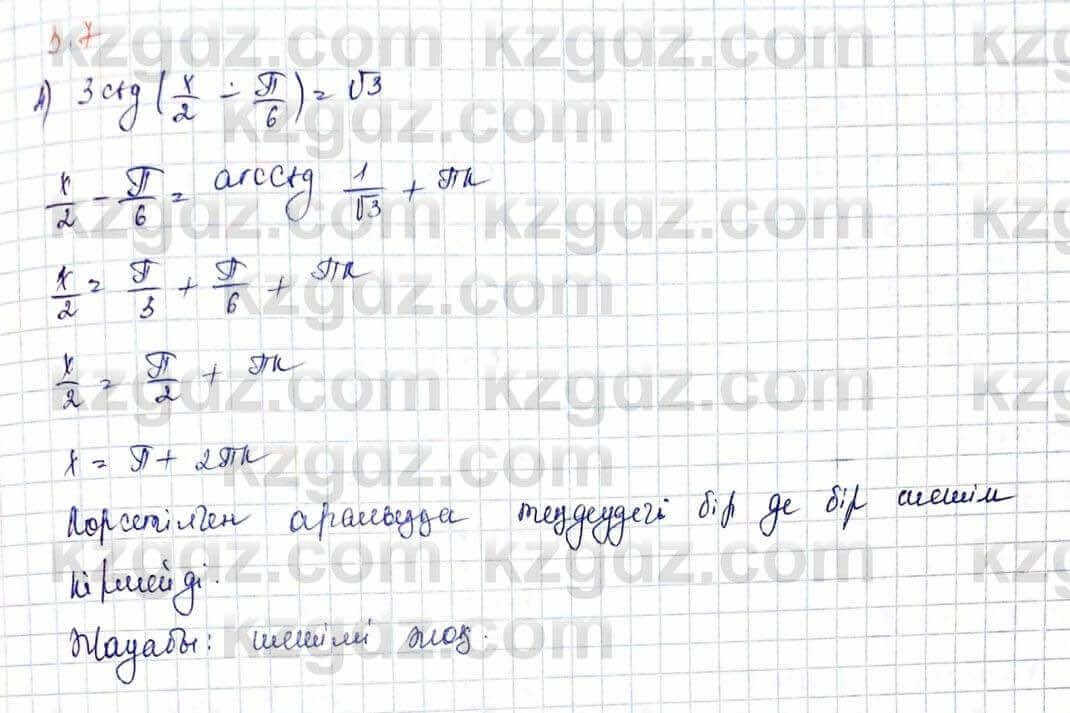 3.7
1) 3ctg(x/2 - π/6) = √3
x/2 - π/6 = arcctg 1/√3 + πk
x/2 = π/3 + π/6 + πk
x/2 = π/2 + πk
x = π + 2πk
Көрсетілген аралықта теңдеудегі бір де бір шешім
кірмейді.
Жауабы: шешімі жоқ.
kzgdz.com